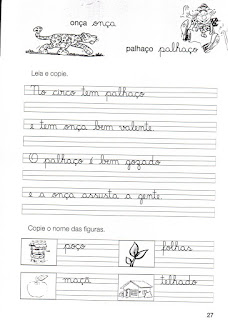 onça onça
palhaço palhaço
Leia e copie.
No circo tem palhaço
e tem onça bem valente.
O palhaço é bem gozado
e a onça assusta a gente.
Copie o nome das figuras.
poço folhas
maçã telhado
27